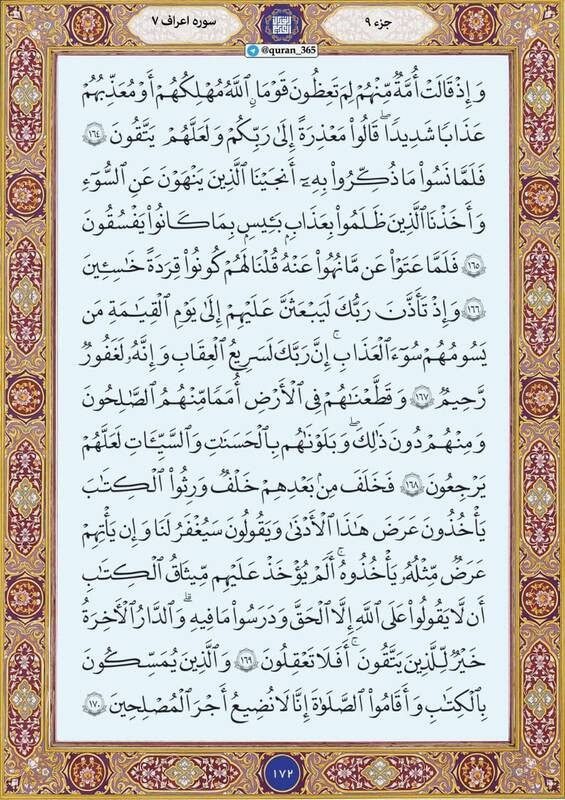 سوره اعراف ۷
جزء ۹
@quran_365
وَإِذْ قَالَتْ أُمَّةٌ مِّنْهُمْ لِمَ تَعِظُونَ قَوْمًا ۙ اللَّهُ مُهْلِكُهُمْ أَوْ مُعَذِّبُهُمْ
عَذَابًا شَدِيدًا ۖ قَالُوا۟ مَعْذِرَةً إِلَىٰ رَبِّكُمْ وَلَعَلَّهُمْ يَتَّقُونَ ١٦٤
فَلَمَّا نَسُوا۟ مَا ذُكِّرُوا۟ بِهِۦٓ أَنجَيْنَا ٱلَّذِينَ يَنْهَوْنَ عَنِ ٱلسُّوٓءِ
وَأَخَذْنَا ٱلَّذِينَ ظَلَمُوا۟ بِعَذَابٍۭ بَـِٔيسٍۭ بِمَا كَانُوا۟ يَفْسُقُونَ
١٦٥ فَلَمَّا عَتَوْا۟ عَن مَّا نُهُوا۟ عَنْهُ قُلْنَا لَهُمْ كُونُوا۟ قِرَدَةً خَـٰسِـِٔينَ
١٦٦ وَإِذْ تَأَذَّنَ رَبُّكَ لَيَبْعَثَنَّ عَلَيْهِمْ إِلَىٰ يَوْمِ ٱلْقِيَـٰمَةِ مَن
يَسُومُهُمْ سُوٓءَ ٱلْعَذَابِ ۗ إِنَّ رَبَّكَ لَسَرِيعُ ٱلْعِقَابِ ۖ وَإِنَّهُۥ لَغَفُورٌ
رَّحِيمٌ ١٦٧ وَقَطَّعْنَـٰهُمْ فِى ٱلْأَرْضِ أُمَمًا ۖ مِّنْهُمُ ٱلصَّـٰلِحُونَ
وَمِنْهُمْ دُونَ ذَٰلِكَ ۖ وَبَلَوْنَـٰهُم بِٱلْحَسَنَـٰتِ وَٱلسَّيِّـَٔاتِ لَعَلَّهُمْ
يَرْجِعُونَ ١٦٨ فَخَلَفَ مِنۢ بَعْدِهِمْ خَلْفٌ وَرِثُوا۟ ٱلْكِتَـٰبَ
يَأْخُذُونَ عَرَضَ هَـٰذَا ٱلْأَدْنَىٰ وَيَقُولُونَ سَيُغْفَرُ لَنَا وَإِن يَأْتِهِمْ
عَرَضٌ مِّثْلُهُۥ يَأْخُذُوهُ ۚ أَلَمْ يُؤْخَذْ عَلَيْهِم مِّيثَـٰقُ ٱلْكِتَـٰبِ
أَن لَّا يَقُولُوا۟ عَلَى ٱللَّهِ إِلَّا ٱلْحَقَّ وَدَرَسُوا۟ مَا فِيهِ ۗ وَٱلدَّارُ ٱلْأَخِرَةُ
خَيْرٌ لِّلَّذِينَ يَتَّقُونَ ۗ أَفَلَا تَعْقِلُونَ ١٦٩ وَٱلَّذِينَ يُمَسِّكُونَ
بِٱلْكِتَـٰبِ وَأَقَامُوا۟ ٱلصَّلَوٰةَ إِنَّا لَا نُضِيعُ أَجْرَ ٱلْمُصْلِحِينَ ١٧٠
١٧٢